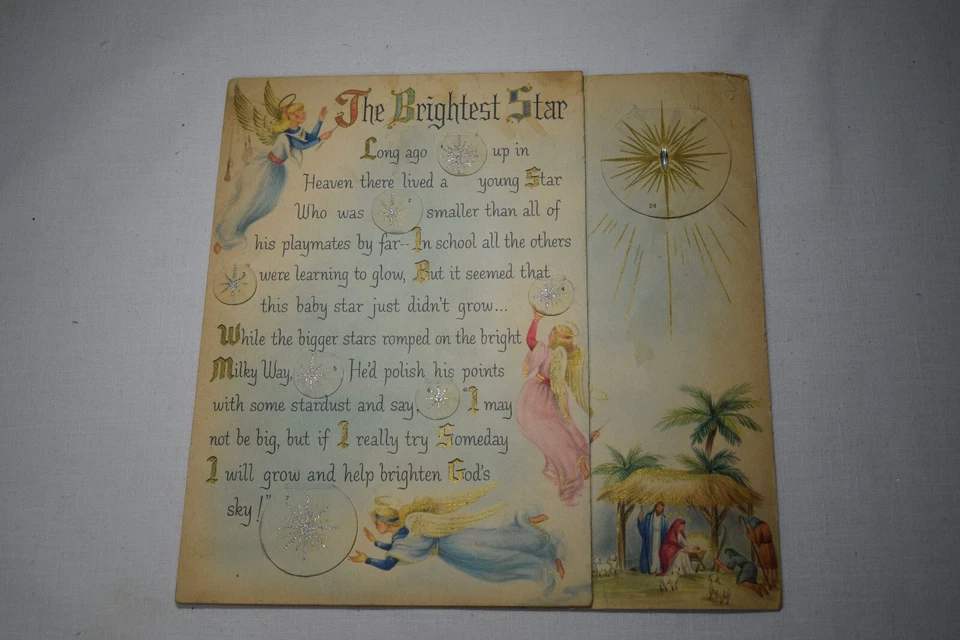 The Brightest Star
Long ago up in
Heaven there lived a young Star
Who was smaller than all of
his playmates by far-- In school all the others
were learning to glow, But it seemed that
this baby star just didn't grow...
While the bigger stars romped on the bright
Milky Way, He'd polish his points
with some stardust and say, "I may
not be big, but if I really try Someday
I will grow and help brighten God's
sky!"
24